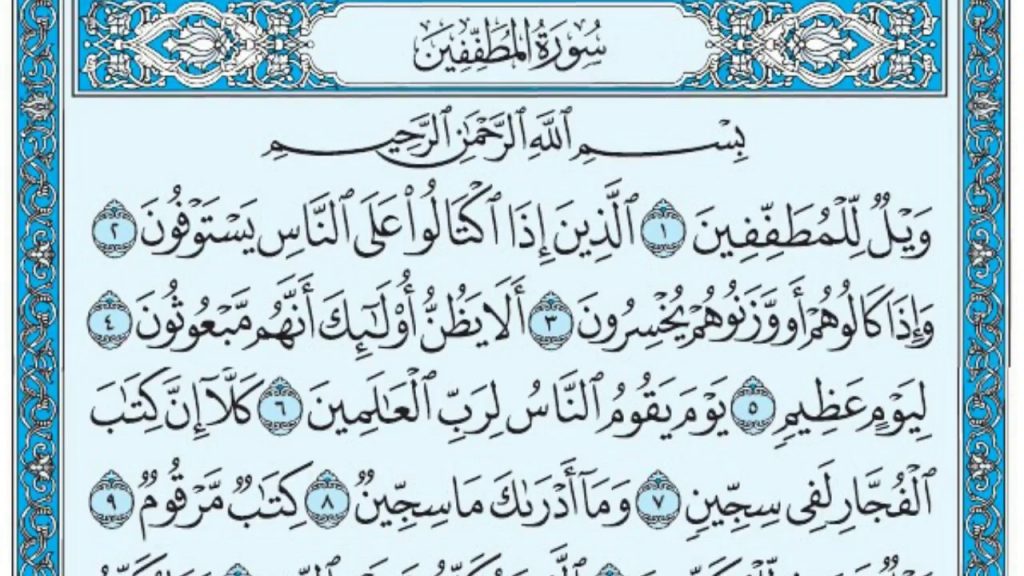 سُورَةُ المُطَفِّفِينَ
بِسْمِ ٱللَّهِ ٱلرَّحْمَٰنِ ٱلرَّحِيمِ
وَيْلٌ لِّلْمُطَفِّفِينَ ١ ٱلَّذِينَ إِذَا ٱكْتَالُوا۟ عَلَى ٱلنَّاسِ يَسْتَوْفُونَ ٢
وَإِذَا كَالُوهُمْ أَو وَّزَنُوهُمْ يُخْسِرُونَ ٣ أَلَا يَظُنُّ أُو۟لَٰٓئِكَ أَنَّهُم مَّبْعُوثُونَ ٤
لِيَوْمٍ عَظِيمٍ ٥ يَوْمَ يَقُومُ ٱلنَّاسُ لِرَبِّ ٱلْعَٰلَمِينَ ٦ كَلَّآ إِنَّ كِتَٰبَ
ٱلْفُجَّارِ لَفِى سِجِّينٍ ٧ وَمَآ أَدْرَىٰكَ مَا سِجِّينٌ ٨ كِتَٰبٌ مَّرْقُومٌ ٩